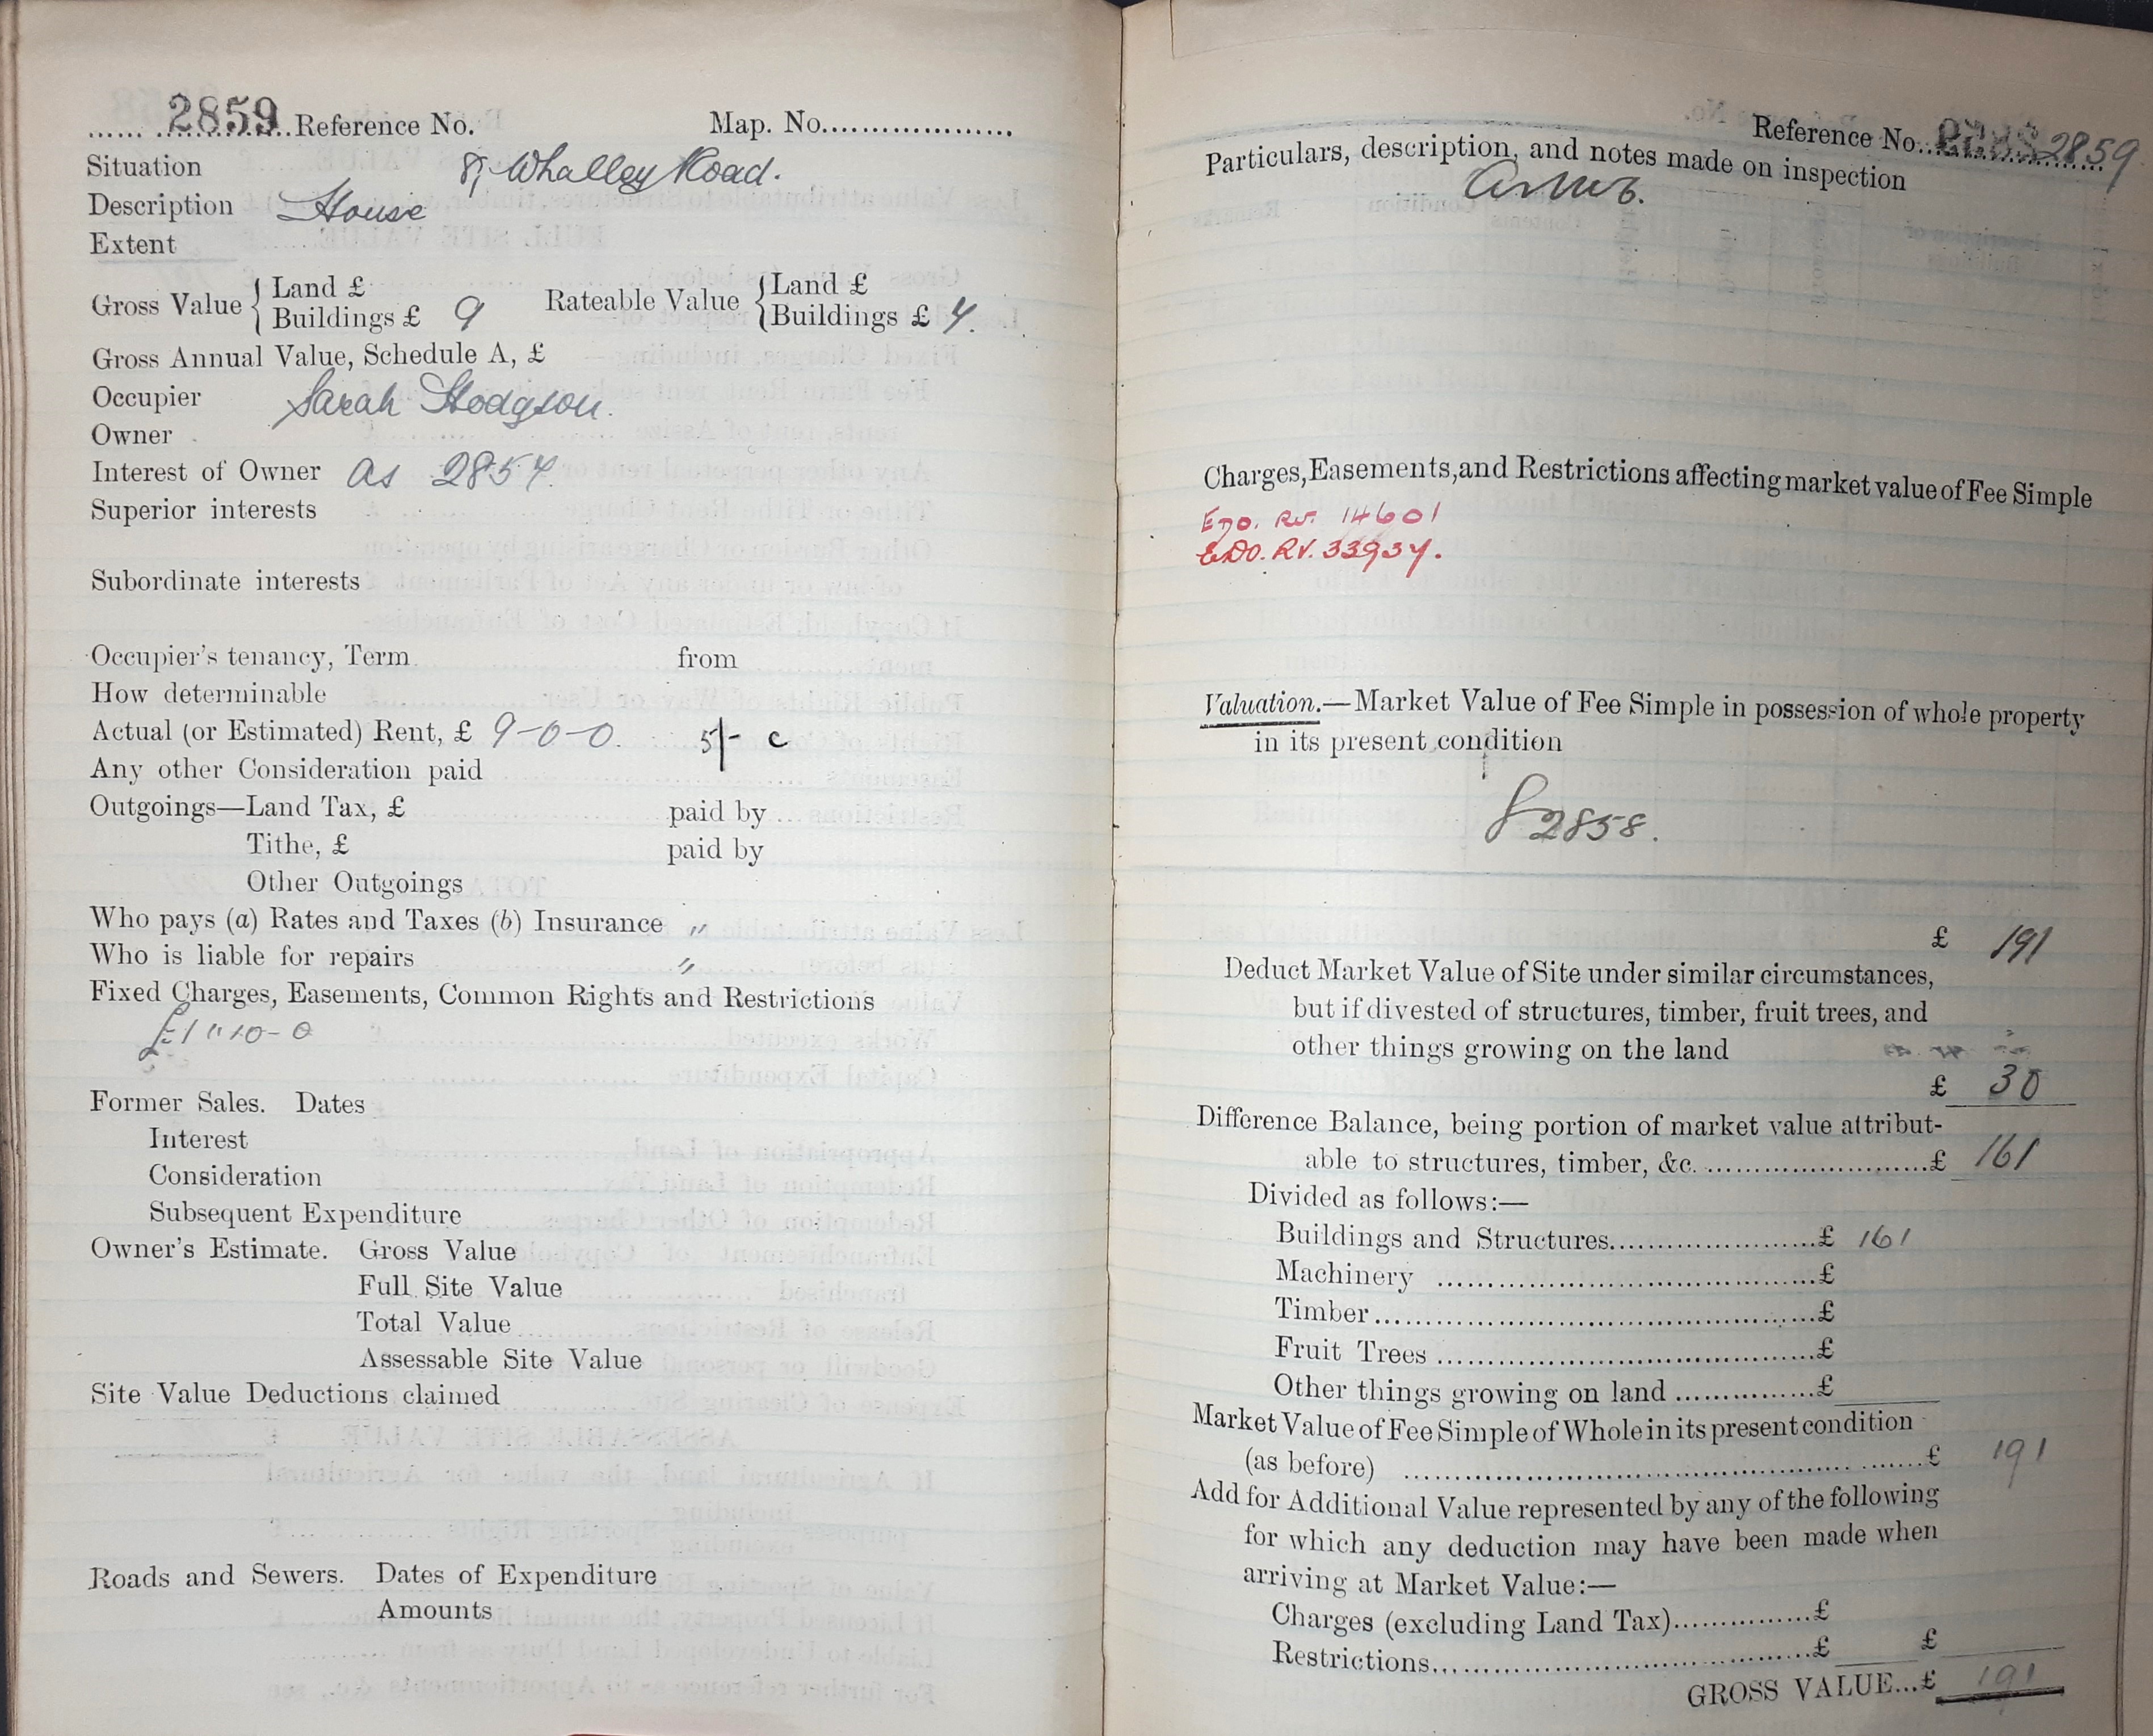 2859 Reference No. Map. No.
Situation 8, Whalley Road.
Description House
Extent
Gross Value { Land £ Rateable Value { Land £
Buildings £ 9 Buildings £ 4.
Gross Annual Value, Schedule A, £
Occupier Sarah Hodgson.
Owner
Interest of Owner as 2854.
Superior interests
Subordinate interests
Occupier's tenancy, Term from
How determinable
Actual (or Estimated) Rent, £ 9-0-0. 5/- c
Any other Consideration paid
Outgoings—Land Tax, £ paid by
Tithe, £ paid by
Other Outgoings
Who pays (a) Rates and Taxes (b) Insurance "
Who is liable for repairs "
Fixed Charges, Easements, Common Rights and Restrictions
£1"10-0
Former Sales. Dates
Interest
Consideration
Subsequent Expenditure
Owner's Estimate. Gross Value
Full Site Value
Total Value
Assessable Site Value
Site Value Deductions claimed
Roads and Sewers. Dates of Expenditure
Amounts
Reference No. 2859
Particulars, description, and notes made on inspection
Charges, Easements, and Restrictions affecting market value of Fee Simple
14601
EDO. RV. 33934.
Valuation.—Market Value of Fee Simple in possession of whole property
in its present condition
2858.
£ 191
Deduct Market Value of Site under similar circumstances,
but if divested of structures, timber, fruit trees, and
other things growing on the land
£ 30
Difference Balance, being portion of market value attribut-
able to structures, timber, &c. £ 161
Divided as follows:—
Buildings and Structures £ 161
Machinery £
Timber £
Fruit Trees £
Other things growing on land £
Market Value of Fee Simple of Whole in its present condition
(as before) £ 191
Add for Additional Value represented by any of the following
for which any deduction may have been made when
arriving at Market Value:—
Charges (excluding Land Tax) £
Restrictions £ £
GROSS VALUE...£ 191